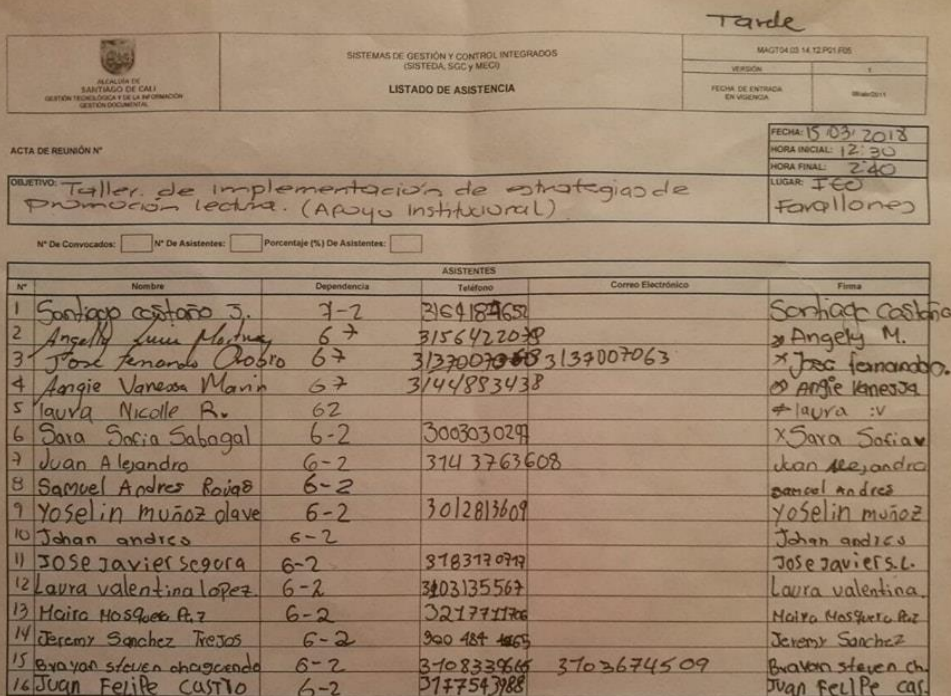 Tarde
ALCALDÍA DE
SANTIAGO DE CALI
GESTIÓN TECNOLÓGICA Y DE LA INFORMACIÓN
GESTIÓN DOCUMENTAL
SISTEMAS DE GESTIÓN Y CONTROL INTEGRADOS
(SISTEDA, SGC y MECI)
LISTADO DE ASISTENCIA
MAGT04.03.14.12.P01.F05
VERSIÓN 1
FECHA DE ENTRADA
EN VIGENCIA
ACTA DE REUNIÓN N°
FECHA: 15/03/2018
HORA INICIAL: 12:30
HORA FINAL: 2:40
LUGAR: IEO
Farallones
OBJETIVO: Taller de implementación de estrategias de
promoción lectura. (Apoyo institucional)
N° De Convocados: N° De Asistentes: Porcentaje (%) De Asistentes:
ASISTENTES
N° Nombre Dependencia Teléfono Correo Electrónico Firma
1 Santiago castaño J. 7-2 Santiago castaño
2 Angelly 67 3156422078 Angely M.
3 Jose fernando 67 3137007063 Jose fernando.
4 Angie Vanessa Marin 67 3144883438 Angie Vanessa
5 laura Nicolle R. 62 laura :v
6 Sara Sofia Sabogal 6-2 3003030297 Sara Sofia
7 Juan Alejandro 6-2 3143763608 Juan Alejandro
8 Samuel Andres 6-2 Samuel Andres
9 Yoselin muñoz olave 6-2 3012813609 Yoselin muñoz
10 Johan andres 6-2 Johan andres
11 Jose Javier segora 6-2 Jose Javier S.L.
12 Laura valentina lopez. 6-2 3103135567 Laura valentina.
13 Maira Mosquera Paz 6-2 Maira Mosquera Paz
14 Jeremy Sanchez Trejos 6-2 Jeremy Sanchez
15 Brayan steven 6-2 3703674509 Brayan steven ch.
16 Juan Felipe Castro 6-2 3177543988 Juan Felipe cas